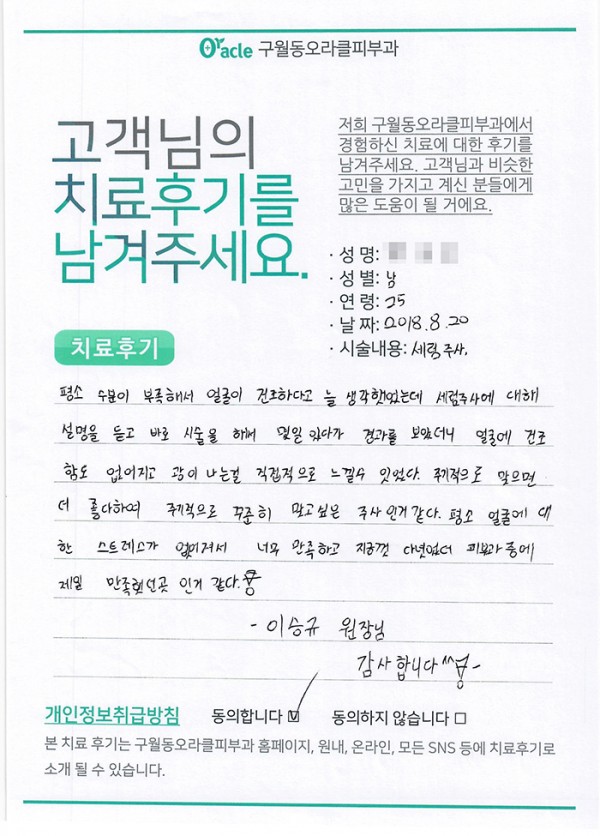 Oracle 구월동오라클피부과
고객님의
치료후기를
남겨주세요.
저희 구월동오라클피부과에서
경험하신 치료에 대한 후기를
남겨주세요. 고객님과 비슷한
고민을 가지고 계신 분들에게
많은 도움이 될 거에요.
· 성 명:
· 성 별: 남
· 연 령: 25
· 날 짜: 2018.8.20
· 시술내용: 세럼주사.
치료후기
평소 수분이 부족해서 얼굴이 건조하다고 늘 생각했었는데 세럼주사에 대해
설명을 듣고 바로 시술을 해버 몇일 있다가 경과를 보았더니 얼굴에 건조
함도 없어지고 광이 나는걸 직접적으로 느낄수 있었다. 주기적으로 맞으면
더 좋다하여 주기적으로 꾸준히 맞고싶은 주사 인거 같다. 평소 얼굴에 대
한 스트레스가 없어져서 너무 만족하고 지금껏 다녔었던 피부과 중에
제일 만족했던곳 인거 같다.
- 이승규 원장님
감사합니다 ^^ -
개인정보취급방침 동의합니다 동의하지 않습니다
본 치료 후기는 구월동오라클피부과 홈페이지, 원내, 온라인, 모든 SNS 등에 치료후기로
소개 될 수 있습니다.